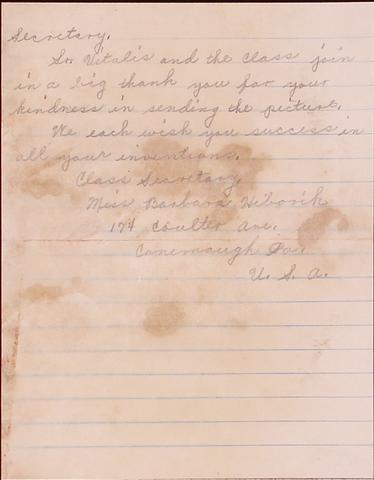 Secretary.
Sr. Vitalis and the class join
in a big thank you for your
kindness in sending the picture.
We each wish you success in
all your inventions.
Class Secretary,
Miss Barbara
174 Coulter Ave.
Conemaugh Pa.
U. S. A.